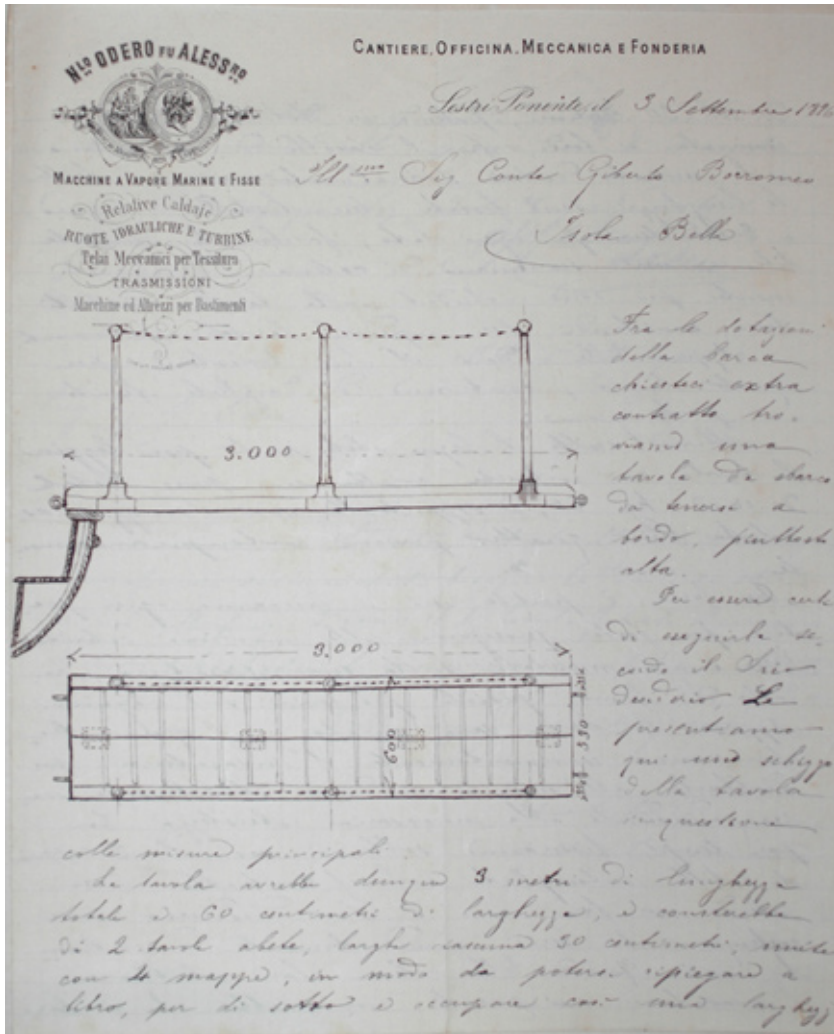 Nlo ODERO FU ALESSRO
CANTIERE, OFFICINA, MECCANICA E FONDERIA
MACCHINE A VAPORE MARINE E FISSE
Relative Caldaje
RUOTE IDRAULICHE E TURBINE
Telai Meccanici per Tessitura
TRASMISSIONI
Macchine ed Attrezzi per Bastimenti
Sestri Ponente, il 3 Settembre
Ill mo Sig Conte Giberto Borromeo
Isola Bella
Fra le dotazioni
della barca
chiesteci extra
contratto tro-
viamo una
tavola da sbarco
da tenersi a
bordo, piuttosto
alta.
Per essere certi
di eseguirla se-
condo il Suo
desiderio, Le
presentiamo
qui uno schizzo
della tavola
in questione
colle misure principali.
3.000
3.000
600
330
La tavola avrebbe dunque 3 metri di lunghezza
totale e 60 centimetri di larghezza, e consterebbe
di 2 tavole abete, larghe 30 centimetri, unite
con 4 mappe, in modo da potersi ripiegare a
libro, per di sotto e occupare così una larghezz